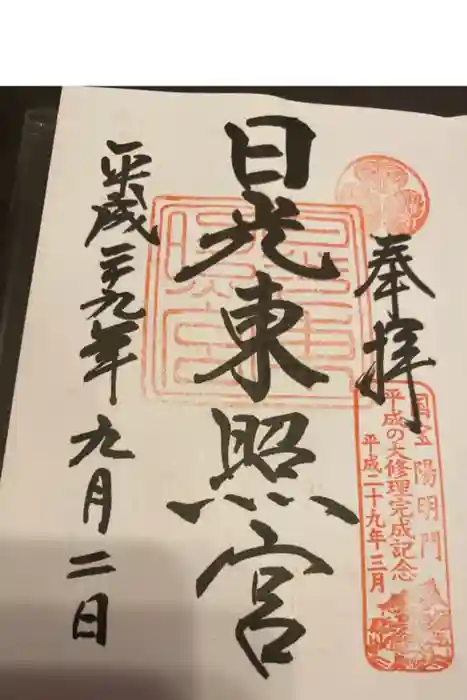 奉拝
国宝 陽明門
平成の大修理完成記念
平成二十九年三月
日光東照宮
平成二十九年
九月二日